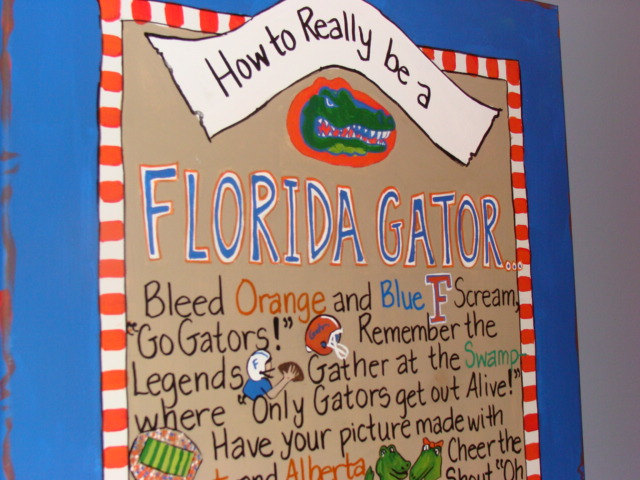 How to Really be a
FLORIDA GATOR...
Bleed Orange and Blue F Scream,
"Go Gators!" Gators Remember the
Legends F Gather at the Swamp-
where "Only Gators get out Alive!"
Have your picture made with
and Alberta Cheer the
Shout "Oh